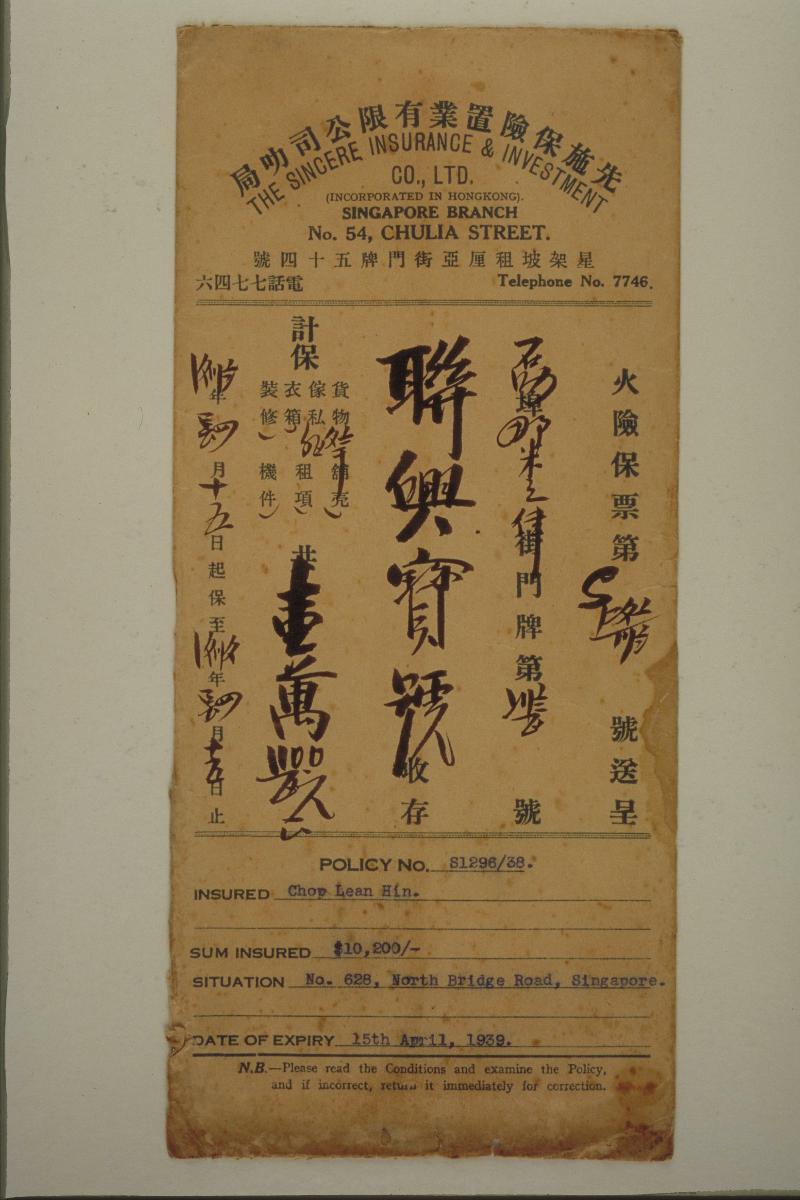 先施保險置業有限公司叻局
THE SINCERE INSURANCE & INVESTMENT
CO., LTD.
(INCORPORATED IN HONGKONG).
SINGAPORE BRANCH
No. 54, CHULIA STREET.
星架坡租厘亞街門牌五十四號
電話七七四六
Telephone No. 7746.
火險保票第
號送呈
街門牌第
號
聯興寶號收存
計保
貨物
傢私
衣箱
裝修
舖壳
租項
機件
共壹萬
年
月十五日起保至
年
月十五日止
POLICY No. S1296/38.
INSURED Chop Lean Hin.
SUM INSURED $10,200/-
SITUATION No. 628, North Bridge Road, Singapore.
DATE OF EXPIRY 15th April, 1939.
N.B.—Please read the Conditions and examine the Policy,
and if incorrect, return it immediately for correction.